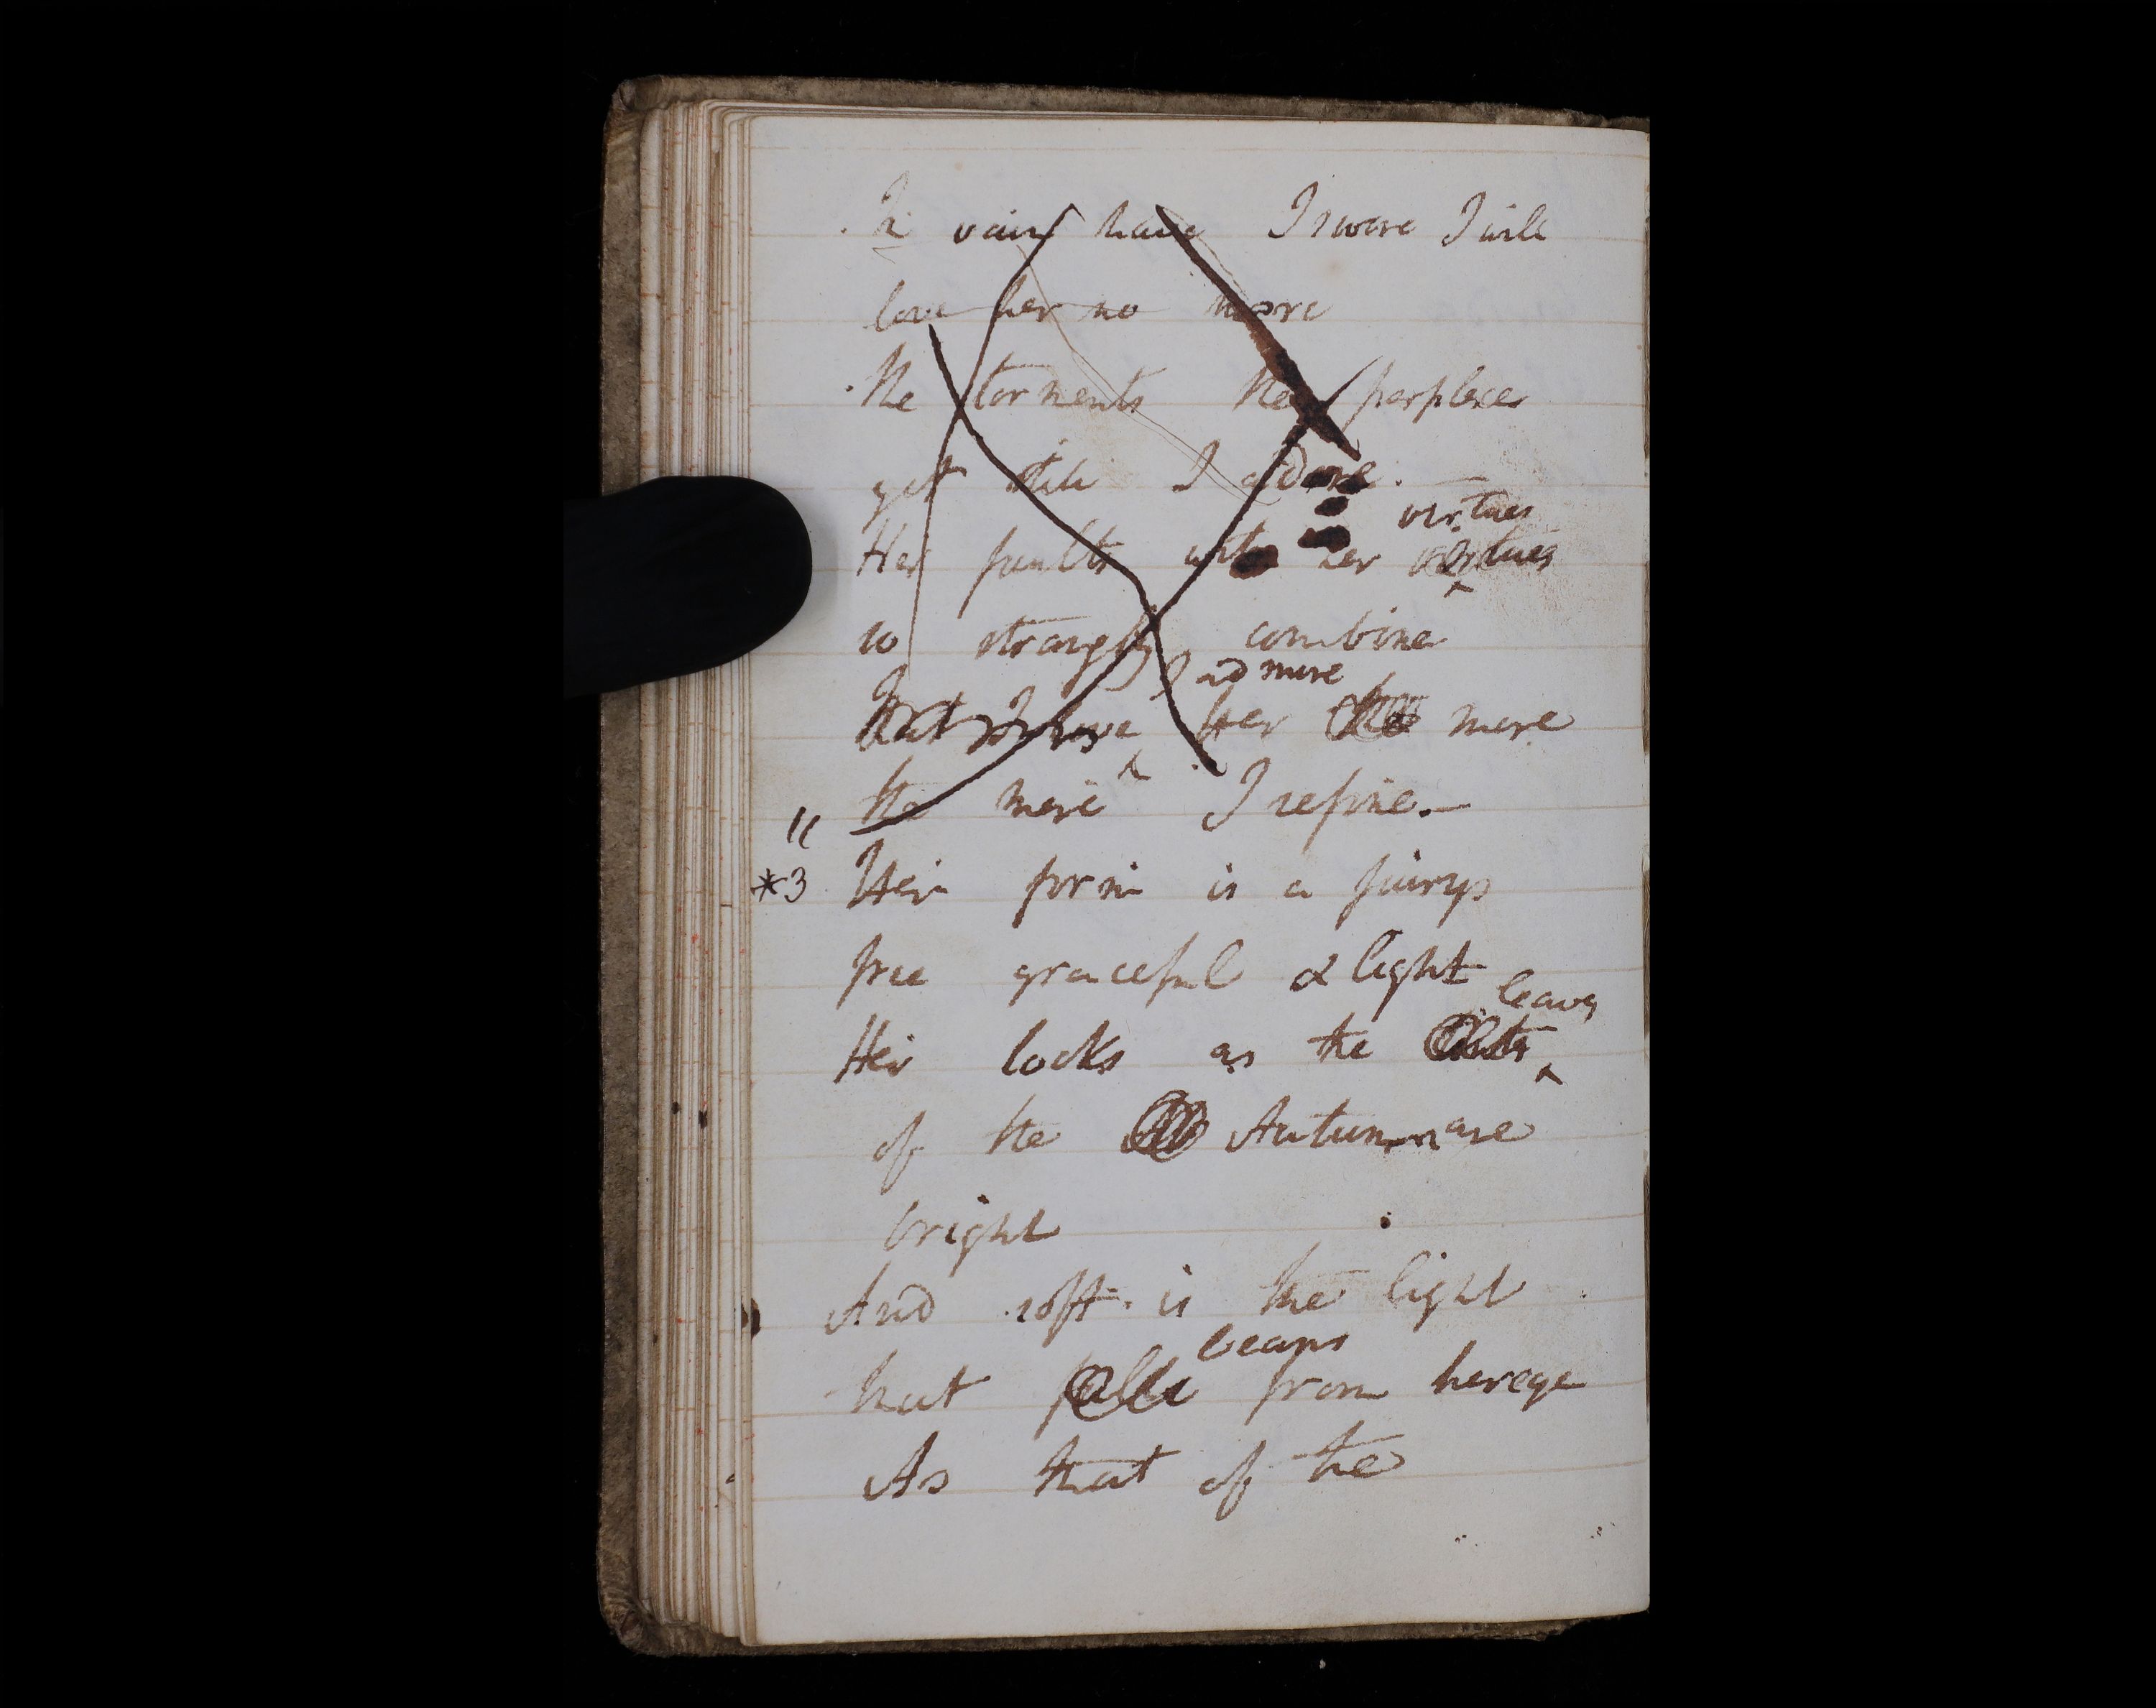 In vain have I swore I will
love her no more
She torments she perplexes
yet still I adore.
virtues
Her faults with her virtues
so strangely combine
I admire
That I love Her the more
the more I refine.—
"
*3 Her form is a fairys
free graceful & light
leaves
Her locks as the tints
of the Autumn are
bright
And soft is the light
beams
that falls from her eye
As that of the